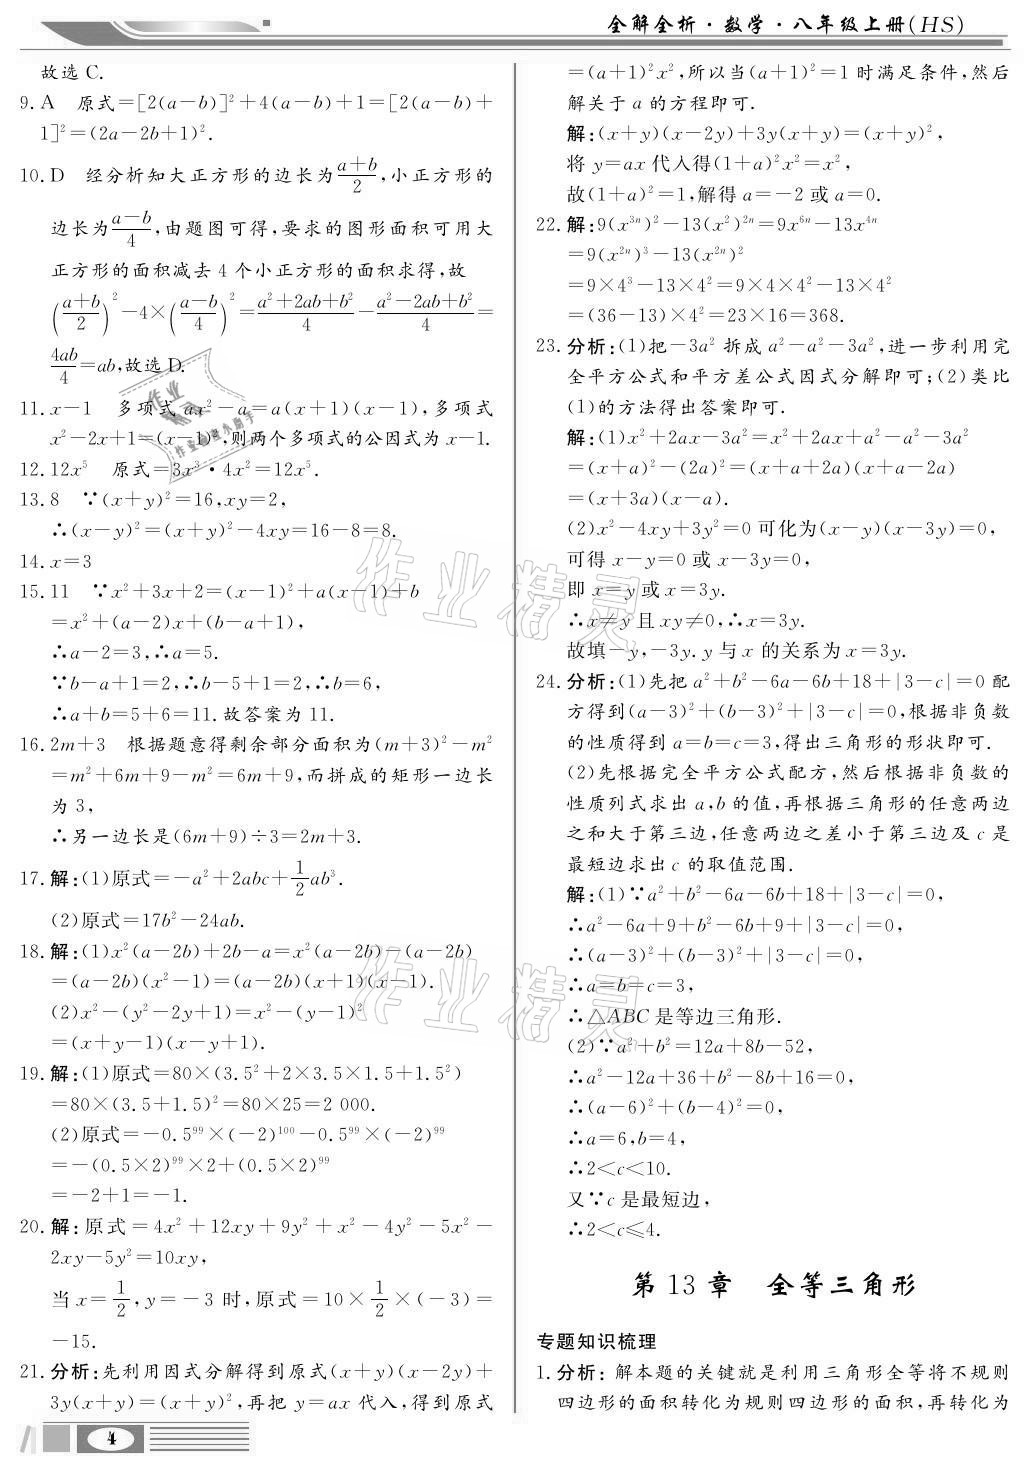 全解全析·数学·八年级上册(HS)
故选 C.
9. A 原式=[2(a-b)]²+4(a-b)+1=[2(a-b)+
1]²=(2a-2b+1)².
10. D 经分析知大正方形的边长为(a+b)/2,小正方形的
边长为(a-b)/4,由题图可得,要求的图形面积可用大
正方形的面积减去 4 个小正方形的面积求得,故
((a+b)/2)²-4×((a-b)/4)²=(a²+2ab+b²)/4-(a²-2ab+b²)/4=
4ab/4=ab,故选 D.
11. x-1 多项式 ax²-a=a(x+1)(x-1),多项式
x²-2x+1=(x-1)²,则两个多项式的公因式为 x-1.
12. 12x⁵ 原式=3x³·4x²=12x⁵.
13. 8 ∵(x+y)²=16,xy=2,
∴(x-y)²=(x+y)²-4xy=16-8=8.
14. x=3
15. 11 ∵x²+3x+2=(x-1)²+a(x-1)+b
=x²+(a-2)x+(b-a+1),
∴a-2=3,∴a=5.
∵b-a+1=2,∴b-5+1=2,∴b=6,
∴a+b=5+6=11.故答案为 11.
16. 2m+3 根据题意得剩余部分面积为(m+3)²-m²
=m²+6m+9-m²=6m+9,而拼成的矩形一边长
为 3,
∴另一边长是(6m+9)÷3=2m+3.
17. 解:(1)原式=-a²+2abc+1/2ab³.
(2)原式=17b²-24ab.
18. 解:(1)x²(a-2b)+2b-a=x²(a-2b)-(a-2b)
=(a-2b)(x²-1)=(a-2b)(x+1)(x-1).
(2)x²-(y²-2y+1)=x²-(y-1)²
=(x+y-1)(x-y+1).
19. 解:(1)原式=80×(3.5²+2×3.5×1.5+1.5²)
=80×(3.5+1.5)²=80×25=2 000.
(2)原式=-0.5⁹⁹×(-2)¹⁰⁰-0.5⁹⁹×(-2)⁹⁹
=-(0.5×2)⁹⁹×2+(0.5×2)⁹⁹
=-2+1=-1.
20. 解:原式=4x²+12xy+9y²+x²-4y²-5x²-
2xy-5y²=10xy,
当 x=1/2,y=-3 时,原式=10×1/2×(-3)=
-15.
21. 分析:先利用因式分解得到原式(x+y)(x-2y)+
3y(x+y)=(x+y)²,再把 y=ax 代入,得到原式
=(a+1)²x²,所以当(a+1)²=1 时满足条件,然后
解关于 a 的方程即可.
解:(x+y)(x-2y)+3y(x+y)=(x+y)²,
将 y=ax 代入得(1+a)²x²=x²,
故(1+a)²=1,解得 a=-2 或 a=0.
22. 解:9(x³ⁿ)²-13(x²)²ⁿ=9x⁶ⁿ-13x⁴ⁿ
=9(x²ⁿ)³-13(x²ⁿ)²
=9×4³-13×4²=9×4×4²-13×4²
=(36-13)×4²=23×16=368.
23. 分析:(1)把-3a² 拆成 a²-a²-3a²,进一步利用完
全平方公式和平方差公式因式分解即可;(2)类比
(1)的方法得出答案即可.
解:(1)x²+2ax-3a²=x²+2ax+a²-a²-3a²
=(x+a)²-(2a)²=(x+a+2a)(x+a-2a)
=(x+3a)(x-a).
(2)x²-4xy+3y²=0 可化为(x-y)(x-3y)=0,
可得 x-y=0 或 x-3y=0,
即 x=y 或 x=3y.
∴x≠y 且 xy≠0,∴x=3y.
故填-y,-3y. y 与 x 的关系为 x=3y.
24. 分析:(1)先把 a²+b²-6a-6b+18+|3-c|=0 配
方得到(a-3)²+(b-3)²+|3-c|=0,根据非负数
的性质得到 a=b=c=3,得出三角形的形状即可.
(2)先根据完全平方公式配方,然后根据非负数的
性质列式求出 a,b 的值,再根据三角形的任意两边
之和大于第三边,任意两边之差小于第三边及 c 是
最短边求出 c 的取值范围.
解:(1)∵a²+b²-6a-6b+18+|3-c|=0,
∴a²-6a+9+b²-6b+9+|3-c|=0,
∴(a-3)²+(b-3)²+|3-c|=0,
∴a=b=c=3,
∴△ABC 是等边三角形.
(2)∵a²+b²=12a+8b-52,
∴a²-12a+36+b²-8b+16=0,
∴(a-6)²+(b-4)²=0,
∴a=6,b=4,
∴2<c<10.
又∵c 是最短边,
∴2<c≤4.
第 13 章 全等三角形
专题知识梳理
1. 分析: 解本题的关键就是利用三角形全等将不规则
四边形的面积转化为规则四边形的面积,再转化为
4
作业精灵
作业精灵